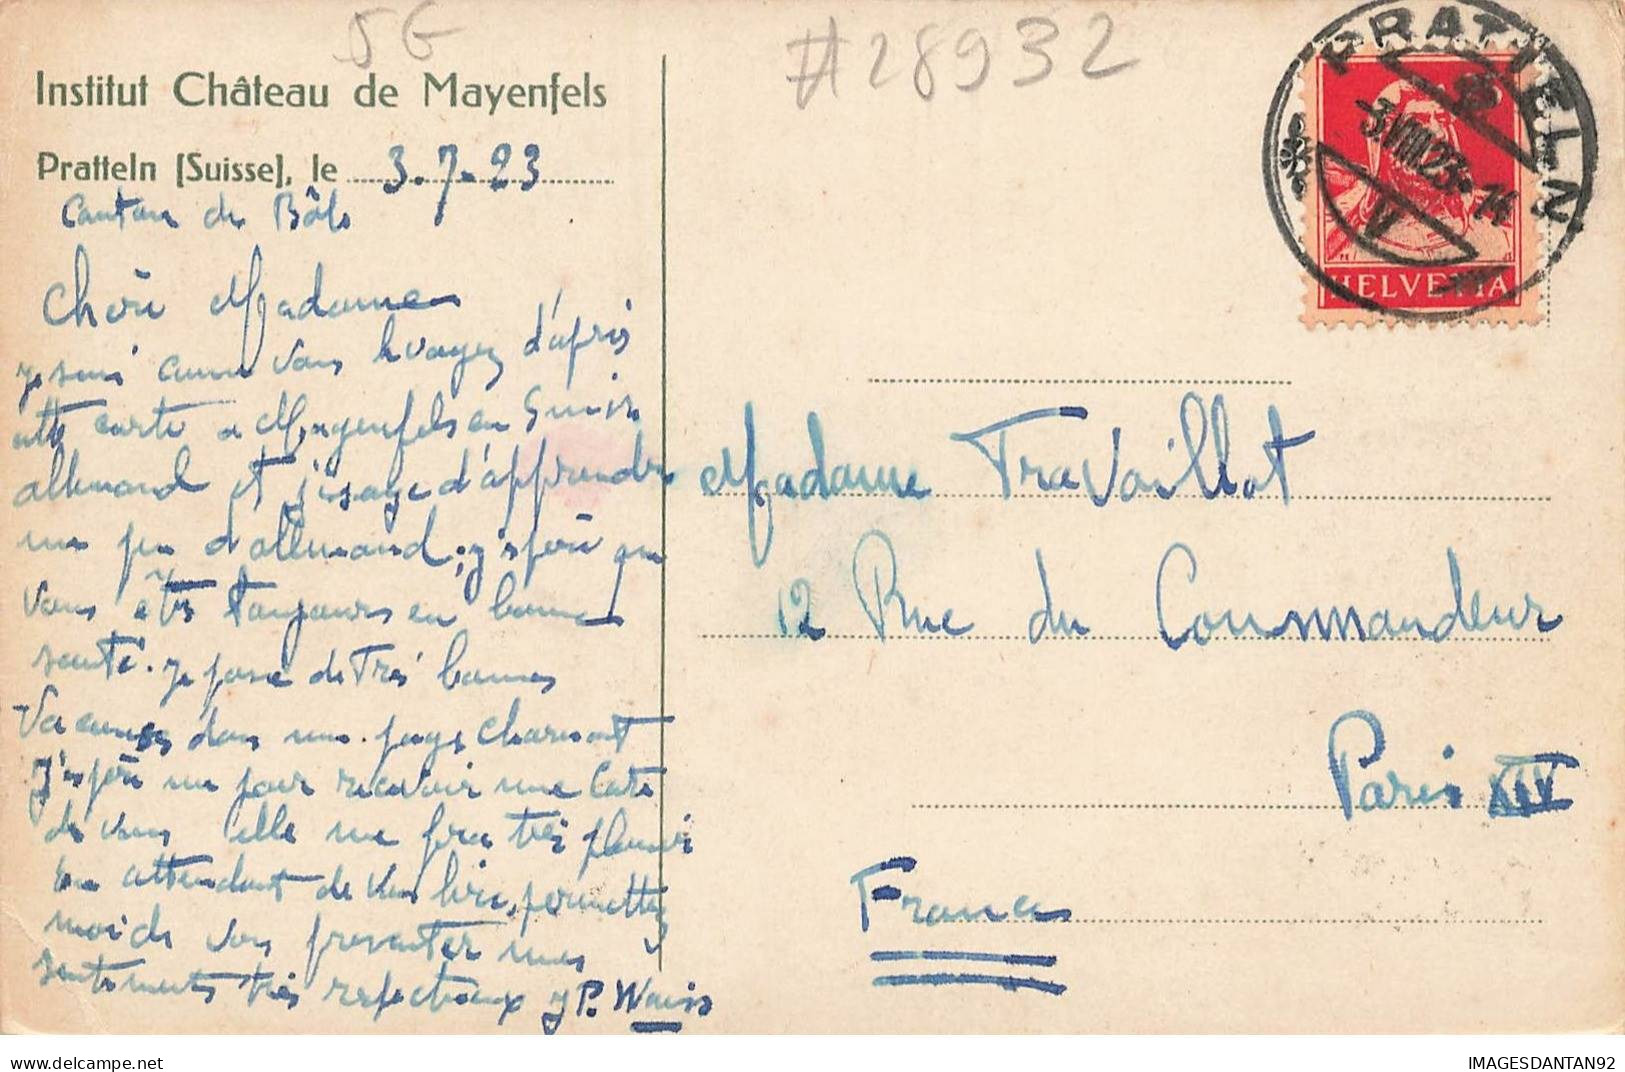 5G
#28932
Institut Château de Mayenfels
Pratteln (Suisse), le 3.7.23
Canton de Bâle
PRATTELN
3.VIII.23.14
HELVETIA
Chère Madame
je suis comme vous le voyez d'après
cette carte a Mayenfels en Suisse
allemand et j'essaye d'apprendre
un peu d'allemand; j'espère que
vous êtes toujours en bonne
santé. je passe de très bonnes
vacances dans un pays charmant
j'espère un jour recevoir une carte
de vous elle me fera très plaisir
En attendant de vous lire, permettez
moi de vous présenter mes
sentiments très respectueux J.P. Weiss
Madame Travaillot
12 Rue du Commandeur
Paris XIV
France
IMAGESDANTAN92